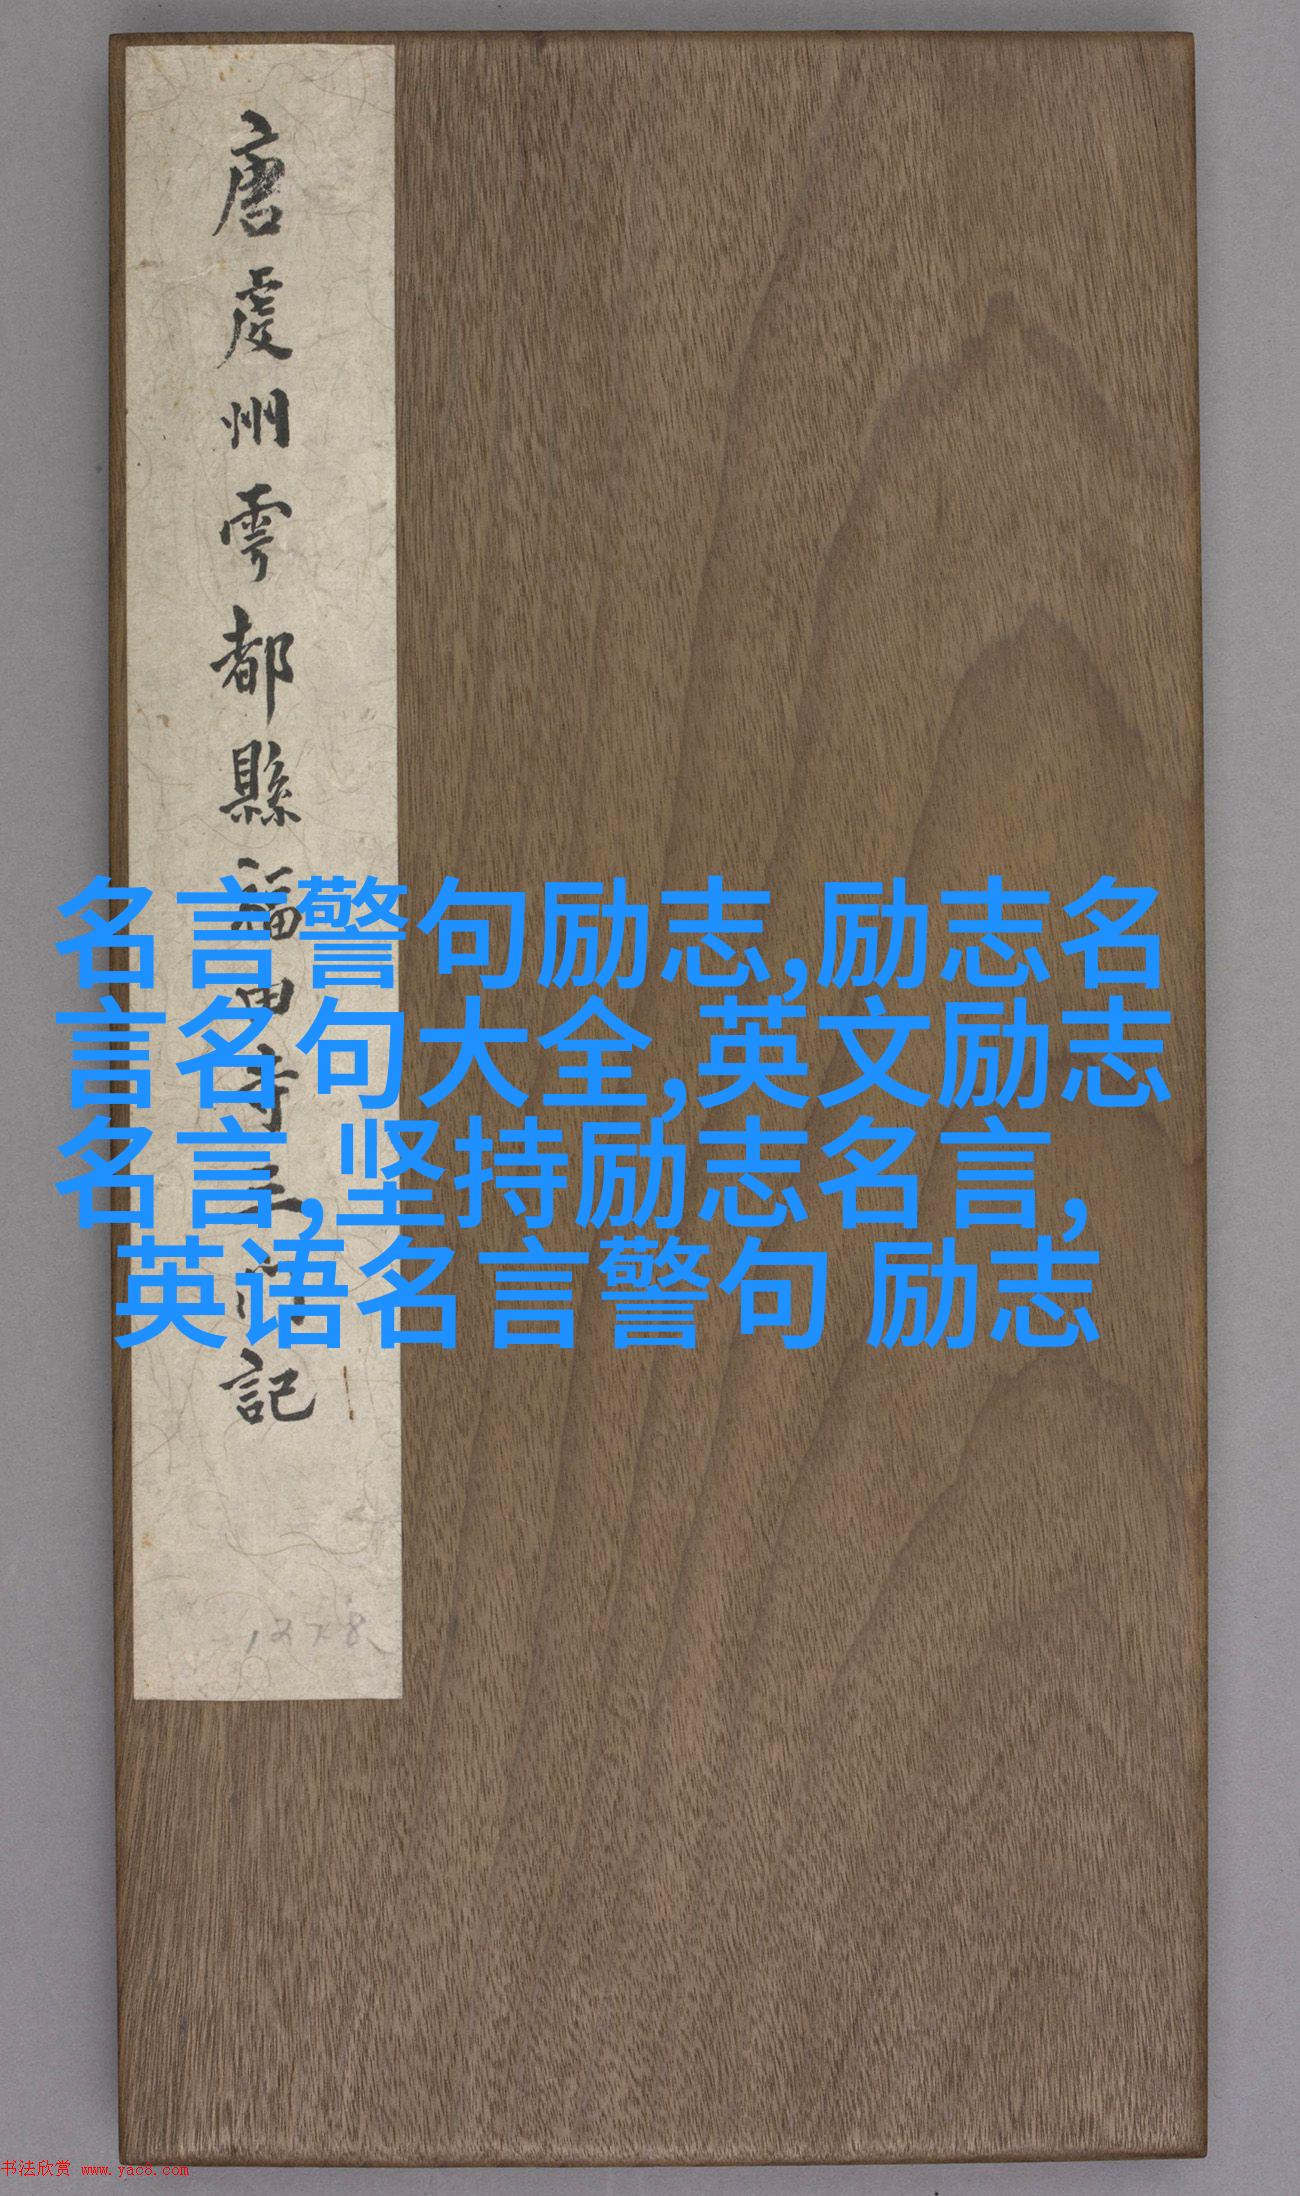 唐虔州雩都縣福田寺三門記
名言警句励志,励志名
言名句大全,英文励志
名言,坚持励志名言,
英语名言警句 励志
书法欣赏 www.yac8.com